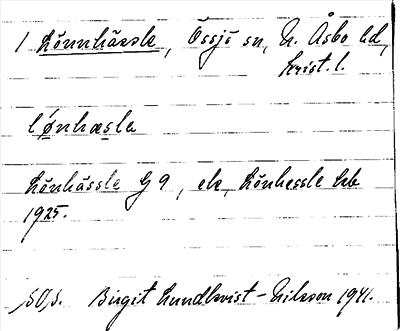 1 Lönnhässle, Össjö sn, N. Åsbo hd,
Krist. l.
lønhæsla
Lönhässle G 9, ek, Lönhessle
1925.
SOS. Birgit Lundkvist-Nilsson 1941.